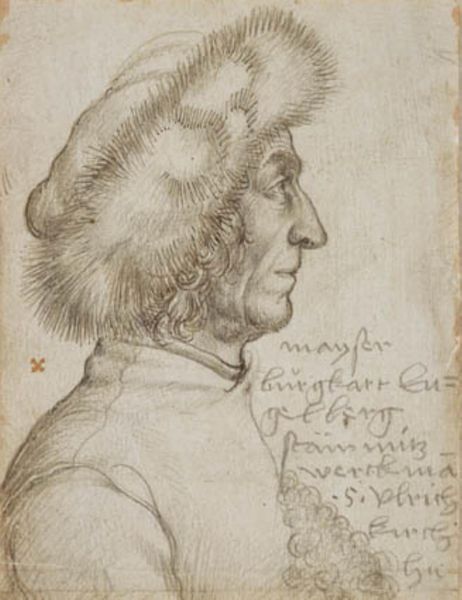 mayster
burgkart En=
gelberg
stainmitz
werckma
.S. Ulrich
kirch
hie